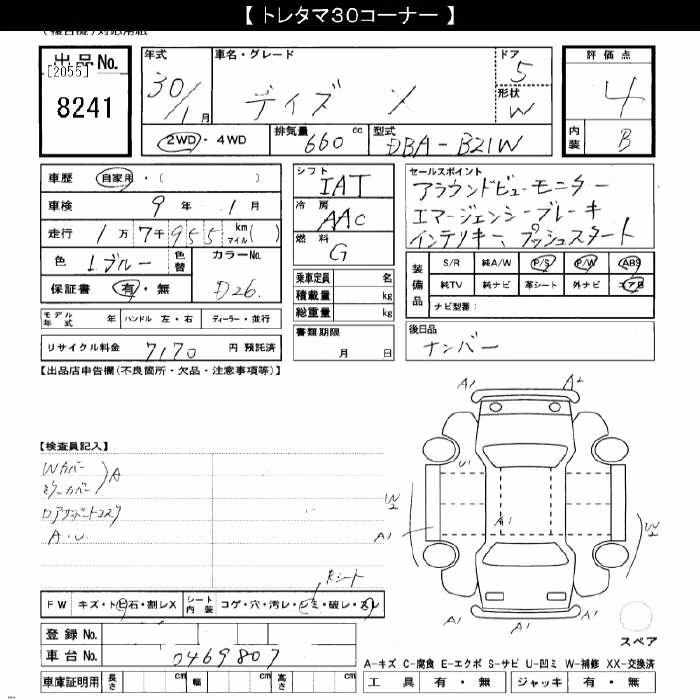 【 トレタマ30コーナー 】
出品No.
[2055]
8241
年式
30/1月
車名・グレード
デイズ X
ドア
5
形状
W
2WD・4WD
排気量
660 cc
型式
DBA-B21W
評価点
4
内装
B
車歴 自家用・( )
車検 9年 1月
走行 1万7千955 km マイル( )
色 1ブルー 色替
カラーNo.
D26.
保証書 有・無
シフト
IAT
冷房
AAC
燃料
G
乗車定員 名
積載量 kg
総重量 kg
書類期限
月 日
セールスポイント
アラウンドビューモニター
エマージェンシーブレーキ
インテリキー、プッシュスタート
装備品
S/R 純A/W P/S P/W ABS
純TV 純ナビ 革シート 外ナビ エアB
ナビ型番:
モデル年式 年 ハンドル 左・右 ディーラー・並行
リサイクル料金 7170 円 預託済
後日品
ナンバー
【出品店申告欄(不良箇所・欠品・注意事項等)】
A1 A2
【検査員記入】
Wカバー
ミラーカバー A
ロアサポートコスリ
A.U.
U1
W2
A1
A1
W2
A1
Rシート
FW キズ・ト石・割レX
シート内装 コゲ・穴・汚レ・シミ・破レ・スレ
A1 A1
登録No.
車台No. 0469807
スペア
A-キズ C-腐食 E-エクボ S-サビ U-凹ミ W-補修 XX-交換済
車庫証明用 長さ cm 幅 cm 高さ cm
工具 有・無 ジャッキ 有・無